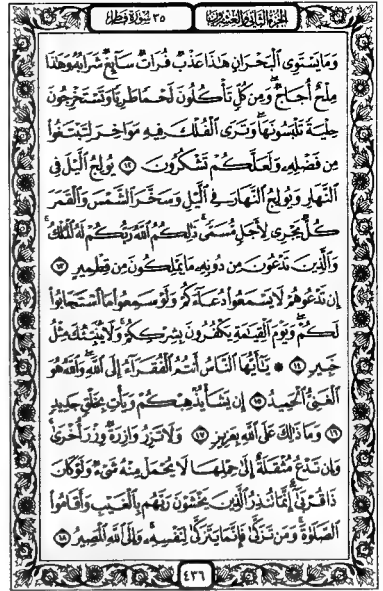 الجزء الثاني والعشرون
٣٥ سورة فاطر
وَمَا يَسْتَوِى ٱلْبَحْرَانِ هَٰذَا عَذْبٌ فُرَاتٌ سَآئِغٌ شَرَابُهُۥ وَهَٰذَا
مِلْحٌ أُجَاجٌ ۖ وَمِن كُلٍّ تَأْكُلُونَ لَحْمًا طَرِيًّا وَتَسْتَخْرِجُونَ
حِلْيَةً تَلْبَسُونَهَا ۖ وَتَرَى ٱلْفُلْكَ فِيهِ مَوَاخِرَ لِتَبْتَغُوا۟
مِن فَضْلِهِۦ وَلَعَلَّكُمْ تَشْكُرُونَ ١٢ يُولِجُ ٱلَّيْلَ فِى
ٱلنَّهَارِ وَيُولِجُ ٱلنَّهَارَ فِى ٱلَّيْلِ وَسَخَّرَ ٱلشَّمْسَ وَٱلْقَمَرَ
كُلٌّ يَجْرِى لِأَجَلٍ مُّسَمًّى ۚ ذَٰلِكُمُ ٱللَّهُ رَبُّكُمْ لَهُ ٱلْمُلْكُ ۚ
وَٱلَّذِينَ تَدْعُونَ مِن دُونِهِۦ مَا يَمْلِكُونَ مِن قِطْمِيرٍ ١٣
إِن تَدْعُوهُمْ لَا يَسْمَعُوا۟ دُعَآءَكُمْ وَلَوْ سَمِعُوا۟ مَا ٱسْتَجَابُوا۟
لَكُمْ ۖ وَيَوْمَ ٱلْقِيَٰمَةِ يَكْفُرُونَ بِشِرْكِكُمْ ۚ وَلَا يُنَبِّئُكَ مِثْلُ
خَبِيرٍ ١٤ ۞ يَٰٓأَيُّهَا ٱلنَّاسُ أَنتُمُ ٱلْفُقَرَآءُ إِلَى ٱللَّهِ ۖ وَٱللَّهُ هُوَ
ٱلْغَنِىُّ ٱلْحَمِيدُ ١٥ إِن يَشَأْ يُذْهِبْكُمْ وَيَأْتِ بِخَلْقٍ جَدِيدٍ
١٦ وَمَا ذَٰلِكَ عَلَى ٱللَّهِ بِعَزِيزٍ ١٧ وَلَا تَزِرُ وَازِرَةٌ وِزْرَ أُخْرَىٰ ۚ
وَإِن تَدْعُ مُثْقَلَةٌ إِلَىٰ حِمْلِهَا لَا يُحْمَلْ مِنْهُ شَىْءٌ وَلَوْ كَانَ
ذَا قُرْبَىٰٓ ۗ إِنَّمَا تُنذِرُ ٱلَّذِينَ يَخْشَوْنَ رَبَّهُم بِٱلْغَيْبِ وَأَقَامُوا۟
ٱلصَّلَوٰةَ ۚ وَمَن تَزَكَّىٰ فَإِنَّمَا يَتَزَكَّىٰ لِنَفْسِهِۦ ۚ وَإِلَى ٱللَّهِ ٱلْمَصِيرُ ١٨
٤٣٦